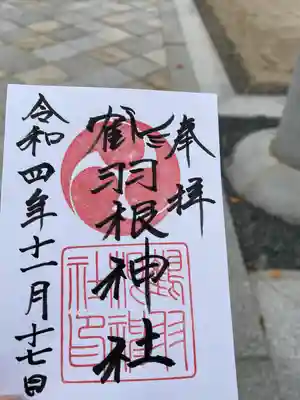 奉拝
鶴羽根神社
令和四年十一月十七日